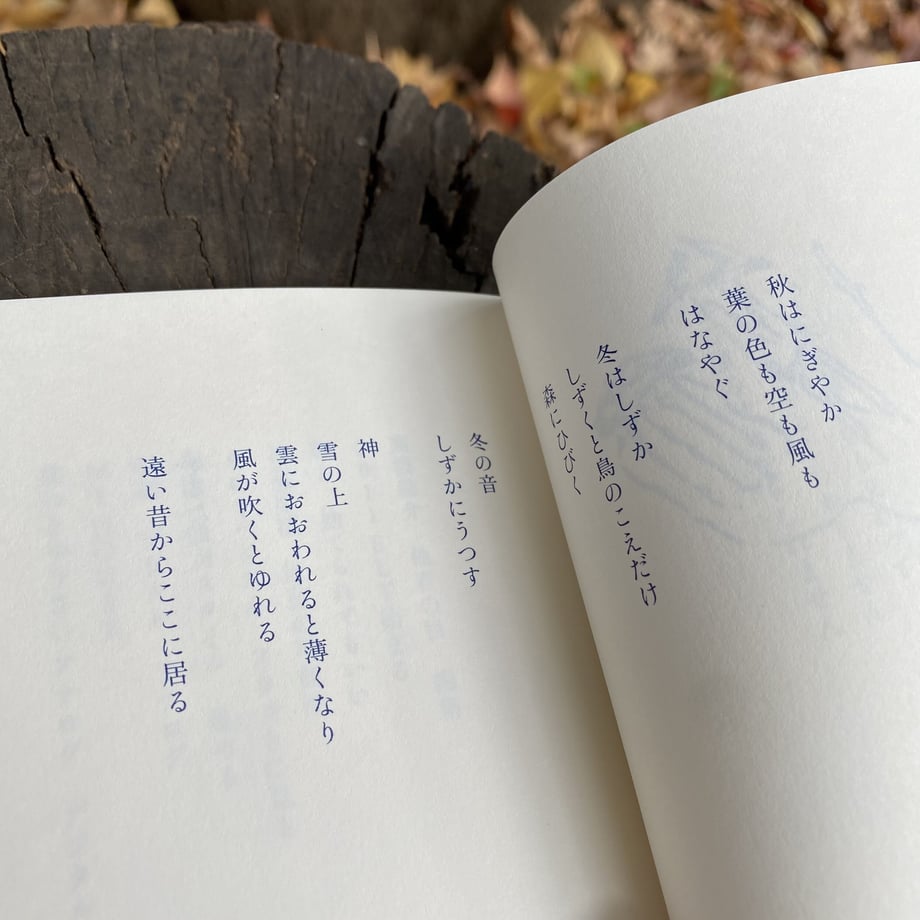 秋はにぎやか
葉の色も空も風も
はなやぐ
冬はしずか
しずくと鳥のこえだけ
森にひびく
冬の音
しずかにうつす
神
雪の上
雲におおわれると薄くなり
風が吹くとゆれる
遠い昔からここに居る